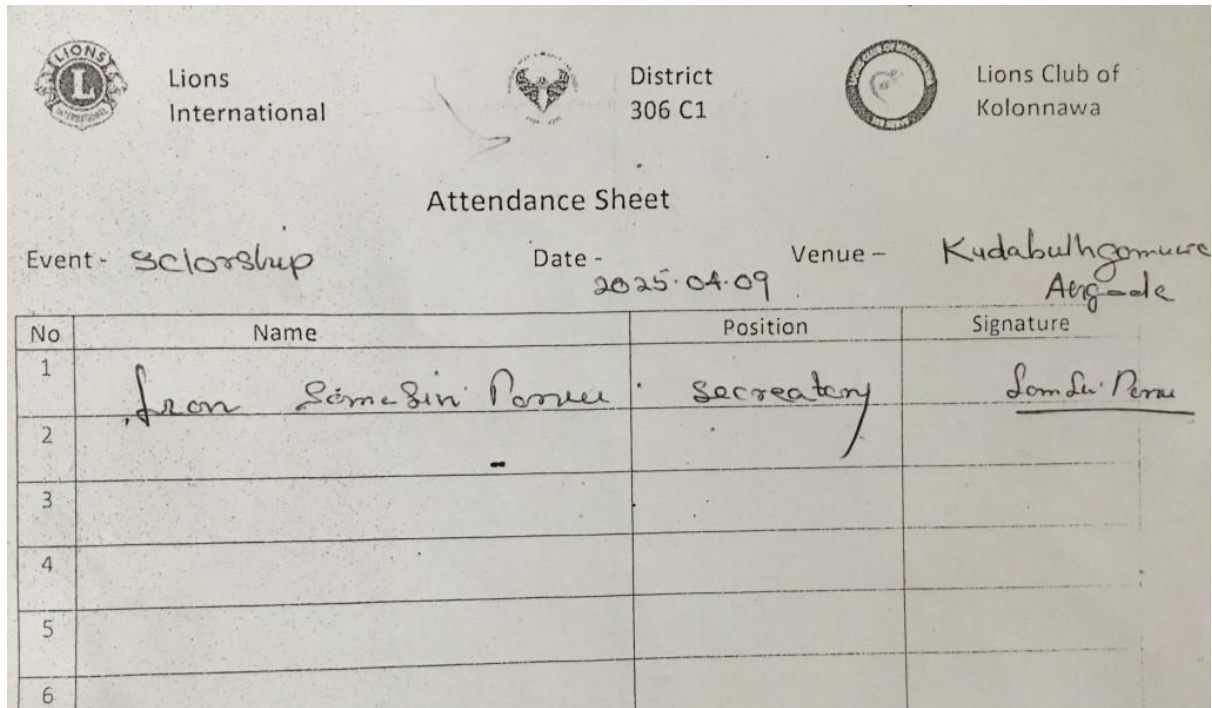 LIONS
L
INTERNATIONAL
Lions
International
District
306 C1
Lions Club of
Kolonnawa
Attendance Sheet
Event - Sclorship
Date -
2025.04.09
Venue - Kudabuthgomuwa
No Name Position Signature
1 secreatery
2
3
4
5
6